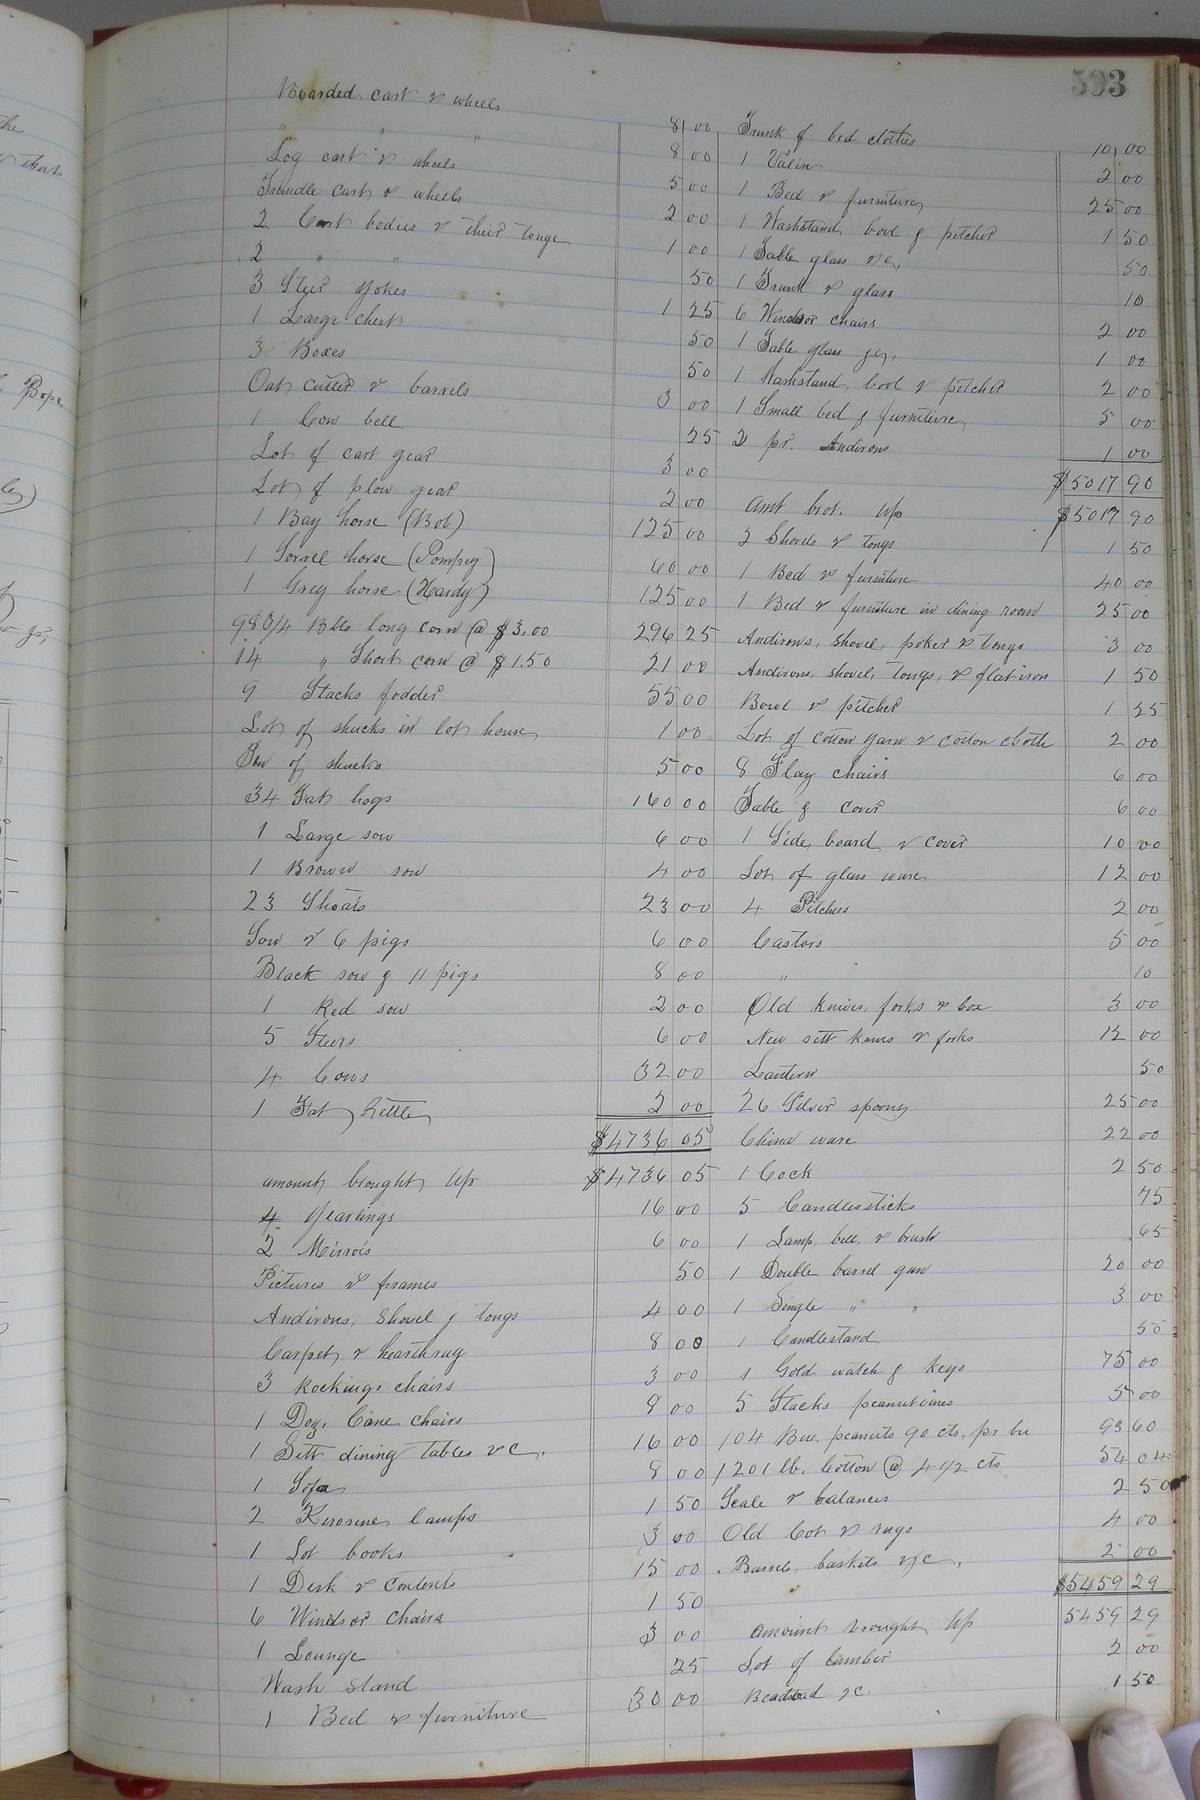 593
Boarded cart & wheels 8 00
" " " 8 00
Log cart & wheels 5 00
Trundle cart & wheels 2 00
2 Cart bodies & their tongs 1 00
2 " " 50
3 Steer yokes 1 25
1 Large chest 50
3 Boxes 50
Oat cutter & barrels 3 00
1 Cow bell 25
Lot of cart gear 3 00
Lot of plow gear 2 00
1 Bay horse (Bob) 125 00
1 Sorrel horse (Pompey) 60 00
1 Grey horse (Hardy) 125 00
98 3/4 Bbls long corn @ $3.00 296 25
14 " Short corn @ $1.50 21 00
9 Stacks fodder 55 00
Lot of shucks in lot house 1 00
Pen of shucks 5 00
34 Fat hogs 160 00
1 Large sow 6 00
1 Brown sow 4 00
23 Shoats 23 00
Sow & 6 pigs 6 00
Black sow & 11 pigs 8 00
1 Red sow 2 00
5 Steers 6 00
4 Cows 32 00
1 Fat kettle 2 00
$4736 05
amount brought up $4736 05
4 Yearlings 16 00
2 Mirrors 6 00
Pictures & frames 50
Andirons, Shovel & tongs 4 00
Carpet & hearthrug 8 00
3 Rockings chairs 3 00
1 Doz. Cane chairs 9 00
1 Sett dining tables &c. 16 00
1 Sofa 8 00
2 Kerosine lamps 1 50
1 Lot books 3 00
1 Desk & contents 15 00
6 Windsor chairs 1 50
1 Lounge 3 00
Wash stand 25
1 Bed & furniture 30 00
Trunk of bed clothes 10 00
1 Valin 2 00
1 Bed & furniture 25 00
1 Washstand, bowl & pitcher 1 50
1 Table glass &c, 50
1 Trunk & glass 10
6 Windsor chairs 2 00
1 Table glass &c, 1 00
1 Washstand, bool & pitcher 2 00
1 Small bed & furniture 5 00
2 pr. Andirons 1 00
$5017 90
amt brot. up $5017 90
2 Shovels & tongs 1 50
1 Bed & furniture 40 00
1 Bed & furniture in dining room 25 00
Andirons, shovel, poker & tongs 3 00
Andirons, shovel, tongs, & flat iron 1 50
Bowl & pitcher 1 25
Lot of cotton yarn & cotton cloth 2 00
8 Flag chairs 6 00
Table & cover 6 00
1 Side board & cover 10 00
Lot of glass ware 12 00
4 Pitchers 2 00
Castors 5 00
" 10
Old knives, forks & box 3 00
New sett knives & forks 12 00
Lantern 50
26 Silver spoons 25 00
China ware 22 00
1 Cock 2 50
5 Candlessticks 75
1 Lamp, bell, & brush 65
1 Double barrel gun 20 00
1 Single " " 3 00
1 Candlestand 50
1 Gold watch & keys 75 00
5 Stacks peanutvines 5 00
104 Bu. peanuts 90 cts. pr bu 93 60
1201 lb. Cotton @ 4 1/2 cts 54 04
Scale & balances 2 50
Old Cot & rugs 4 00
Barrels, baskets &c, 2 00
$5459 29
amount brought up 5459 29
Lot of lumber 2 00
Beadstead &c. 1 50